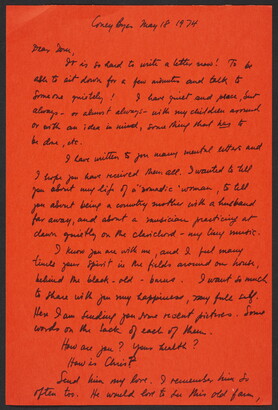 Coney Byer May 18 1974
Dear
It is so hard to write a letter now! To be
able to sit down for a few minutes and talk to
someone quietly! I have quiet and peace, but
always - or almost always - with my children around
or with an idea in mind, some thing that has to
be done, etc.
I have written to you many mental letters and
I hope you have received them all. I wanted to tell
you about my life of a "nomadic" woman, to tell
you about being a country mother with a husband
far away, and about a musician practicing at
dawn quietly on the clavichord - my lazy music.
I know you are with me, and I feel many
times your spirit in the fields around our house,
behind the black-old-barns. I want so much
to share with you my happiness, my full self.
Here I am sending you some recent pictures. Some
words on the back of each of them.
How are you? Your health?
How is Christ
Send him my love. I remember him so
often too. He would love to hear this old farm,